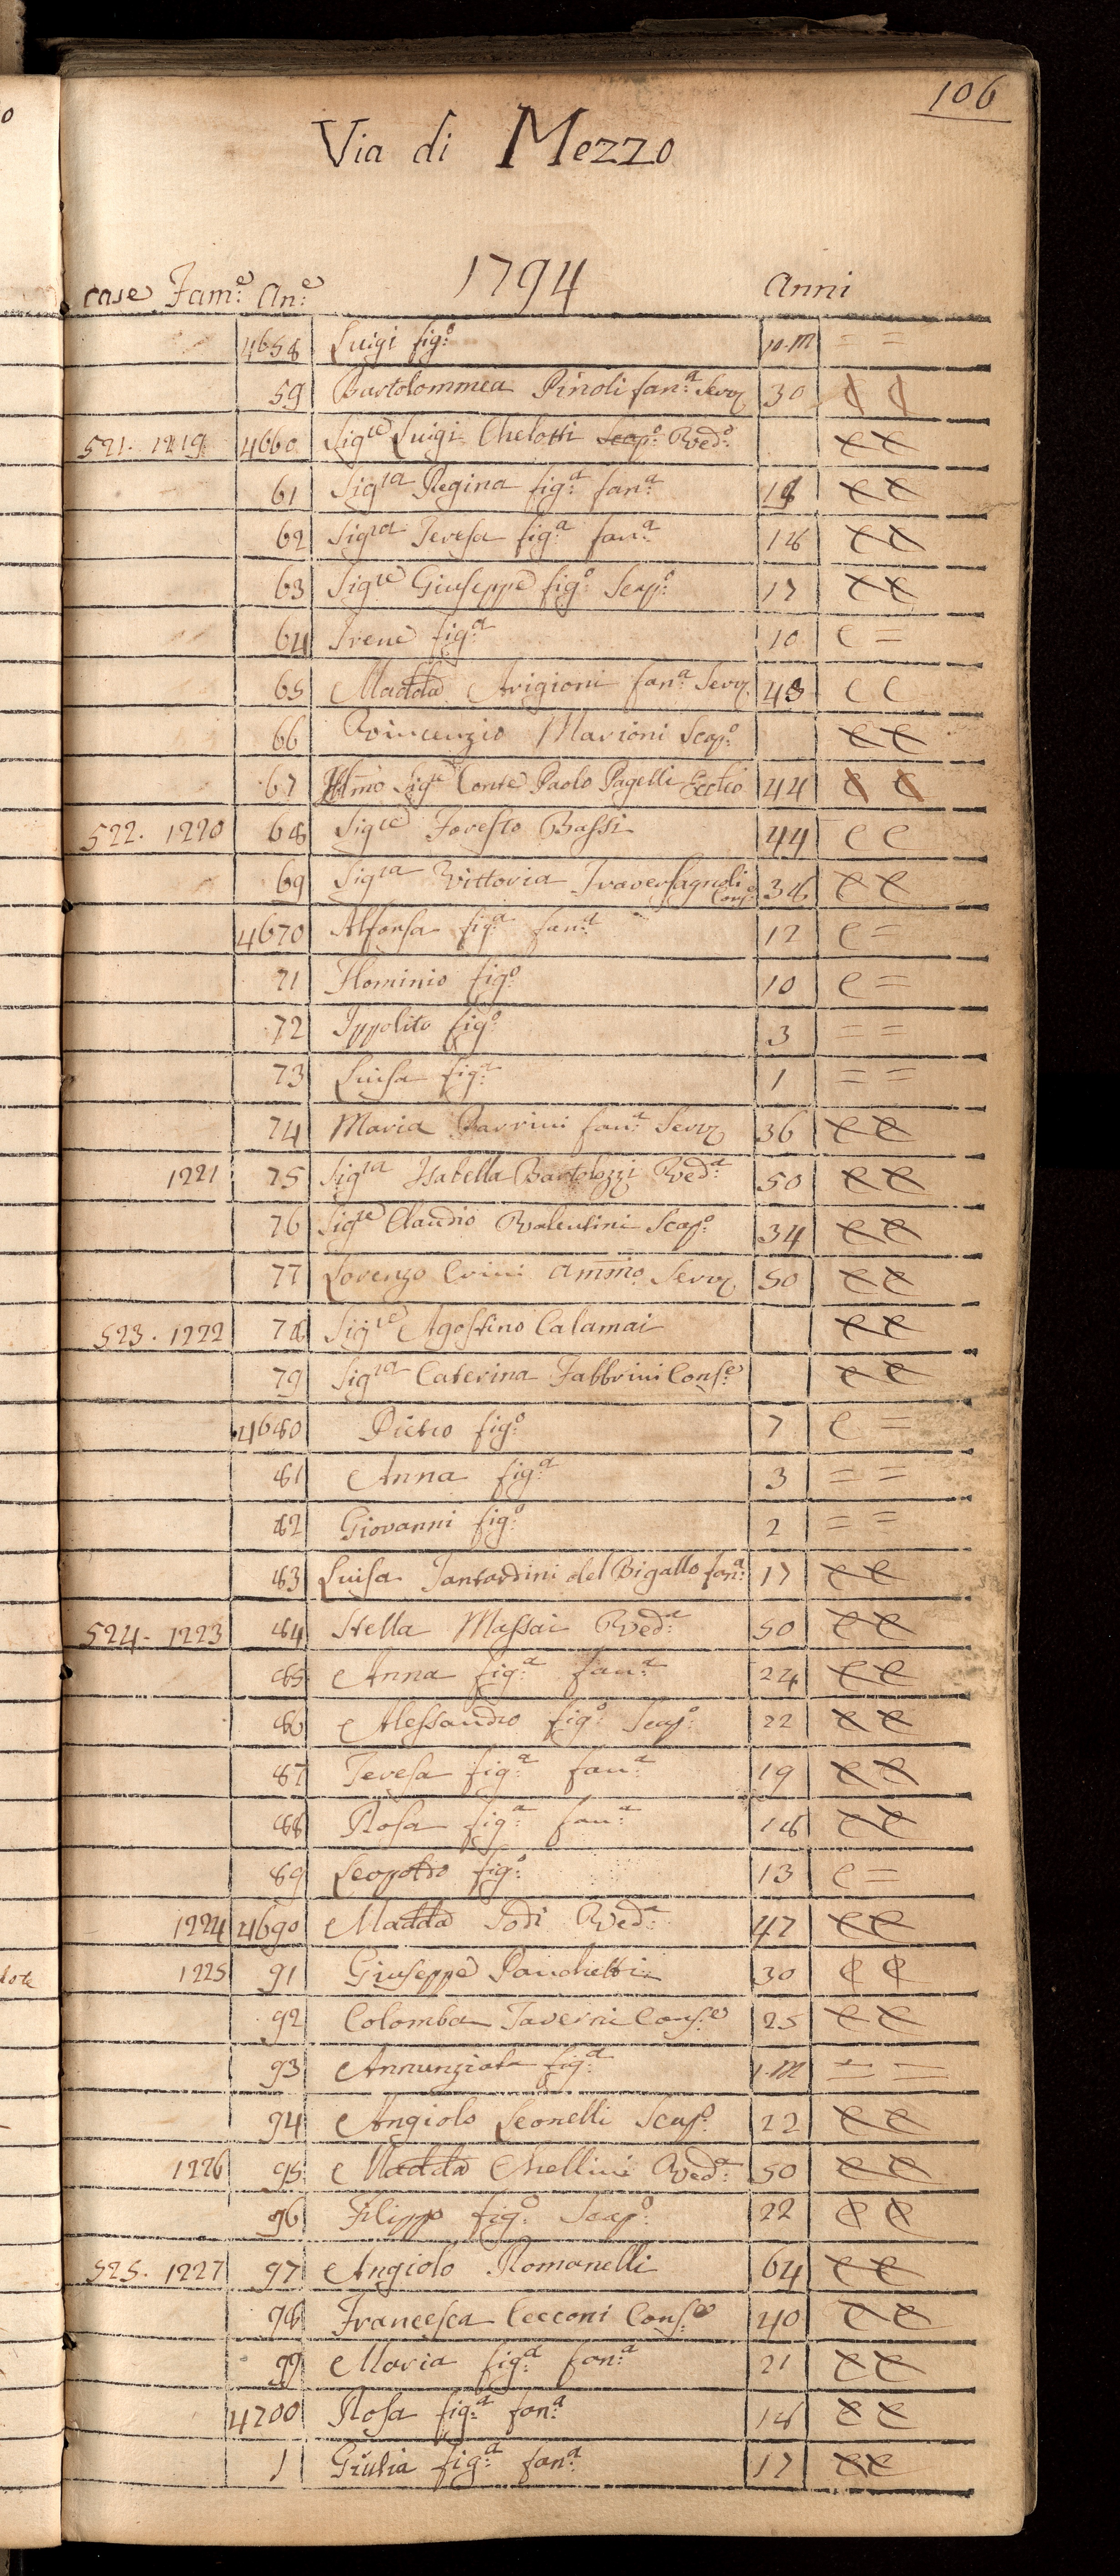 106
Via di Mezzo
1794
case Fam:e An:e Anni
4658 Luigi fig:o 10.M = =
59 Bartolommea Pinoli fan:a Serv. 30 ¢ ¢
521. 1219 4660 Sigre Luigi Chelotti scap:o Ved:o e e
61 Sigra Regina fig:a fan:a 18 e e
62 Sigra Teresa fig:a fan:a 18 e e
63 Sigre Giuseppe fig:o Scap:o 17 e e
64 Irene fig:a 10 e =
65 Madda Arigioni fan:a Serv. 43 e e
66 Vincenzio Marioni Scap:o e e
67 Illmo Sigre Conte Paolo Pagelli 44 e e
522. 1220 68 Sigre Foresto Bassi 44 e e
69 Sigra Vittoria Traversagnoli Cons:e 38 e e
4670 Alfonsa fig:a fan:a 12 e =
71 Flominio fig:o 10 e =
72 Ippolito fig:o 3 = =
73 Luisa fig:a 1 = =
74 Maria Barrini fan:a Serv. 36 e e
1221 75 Sigra Isabella Bartolozzi Ved:a 50 e e
76 Sigre Claudio Valentini Scap:o 34 e e
77 Lorenzo Crini Ammo. Serv. 50 e e
523. 1222 78 Sigre Agostino Calamai e e
79 Sigra Caterina Fabbrini Cons:e e e
4680 Pietro fig:o 7 e =
81 Anna fig:a 3 = =
82 Giovanni fig:o 2 = =
83 Luisa Tantardini del Bigallo fan:a 17 e e
524. 1223 84 Stella Massai Ved:a 50 e e
85 Anna fig:a fan:a 24 e e
86 Alessandro fig:o Scap:o 22 e e
87 Teresa fig:a fan:a 19 e e
88 Rosa fig:a fan:a 18 e e
89 Leopoldo fig:o 13 e =
1224 4690 Madda Todi Ved:a 47 e e
1225 91 Giuseppe Panchetti 30 ¢ ¢
92 Colomba Taverni Cons:e 25 e e
93 Annunziata fig:a 1.M = =
94 Angiolo Leonelli Scap:o 22 e e
1226 95 Madda Chellini Ved:a 50 e e
96 Filippo fig:o Scap:o 22 e e
525. 1227 97 Angiolo Romanelli 64 e e
98 Francesca Cecconi Cons:e 40 e e
99 Maria fig:a fan:a 21 e e
4700 Rosa fig:a fan:a 18 e e
1 Giulia fig:a fan:a 17 e e